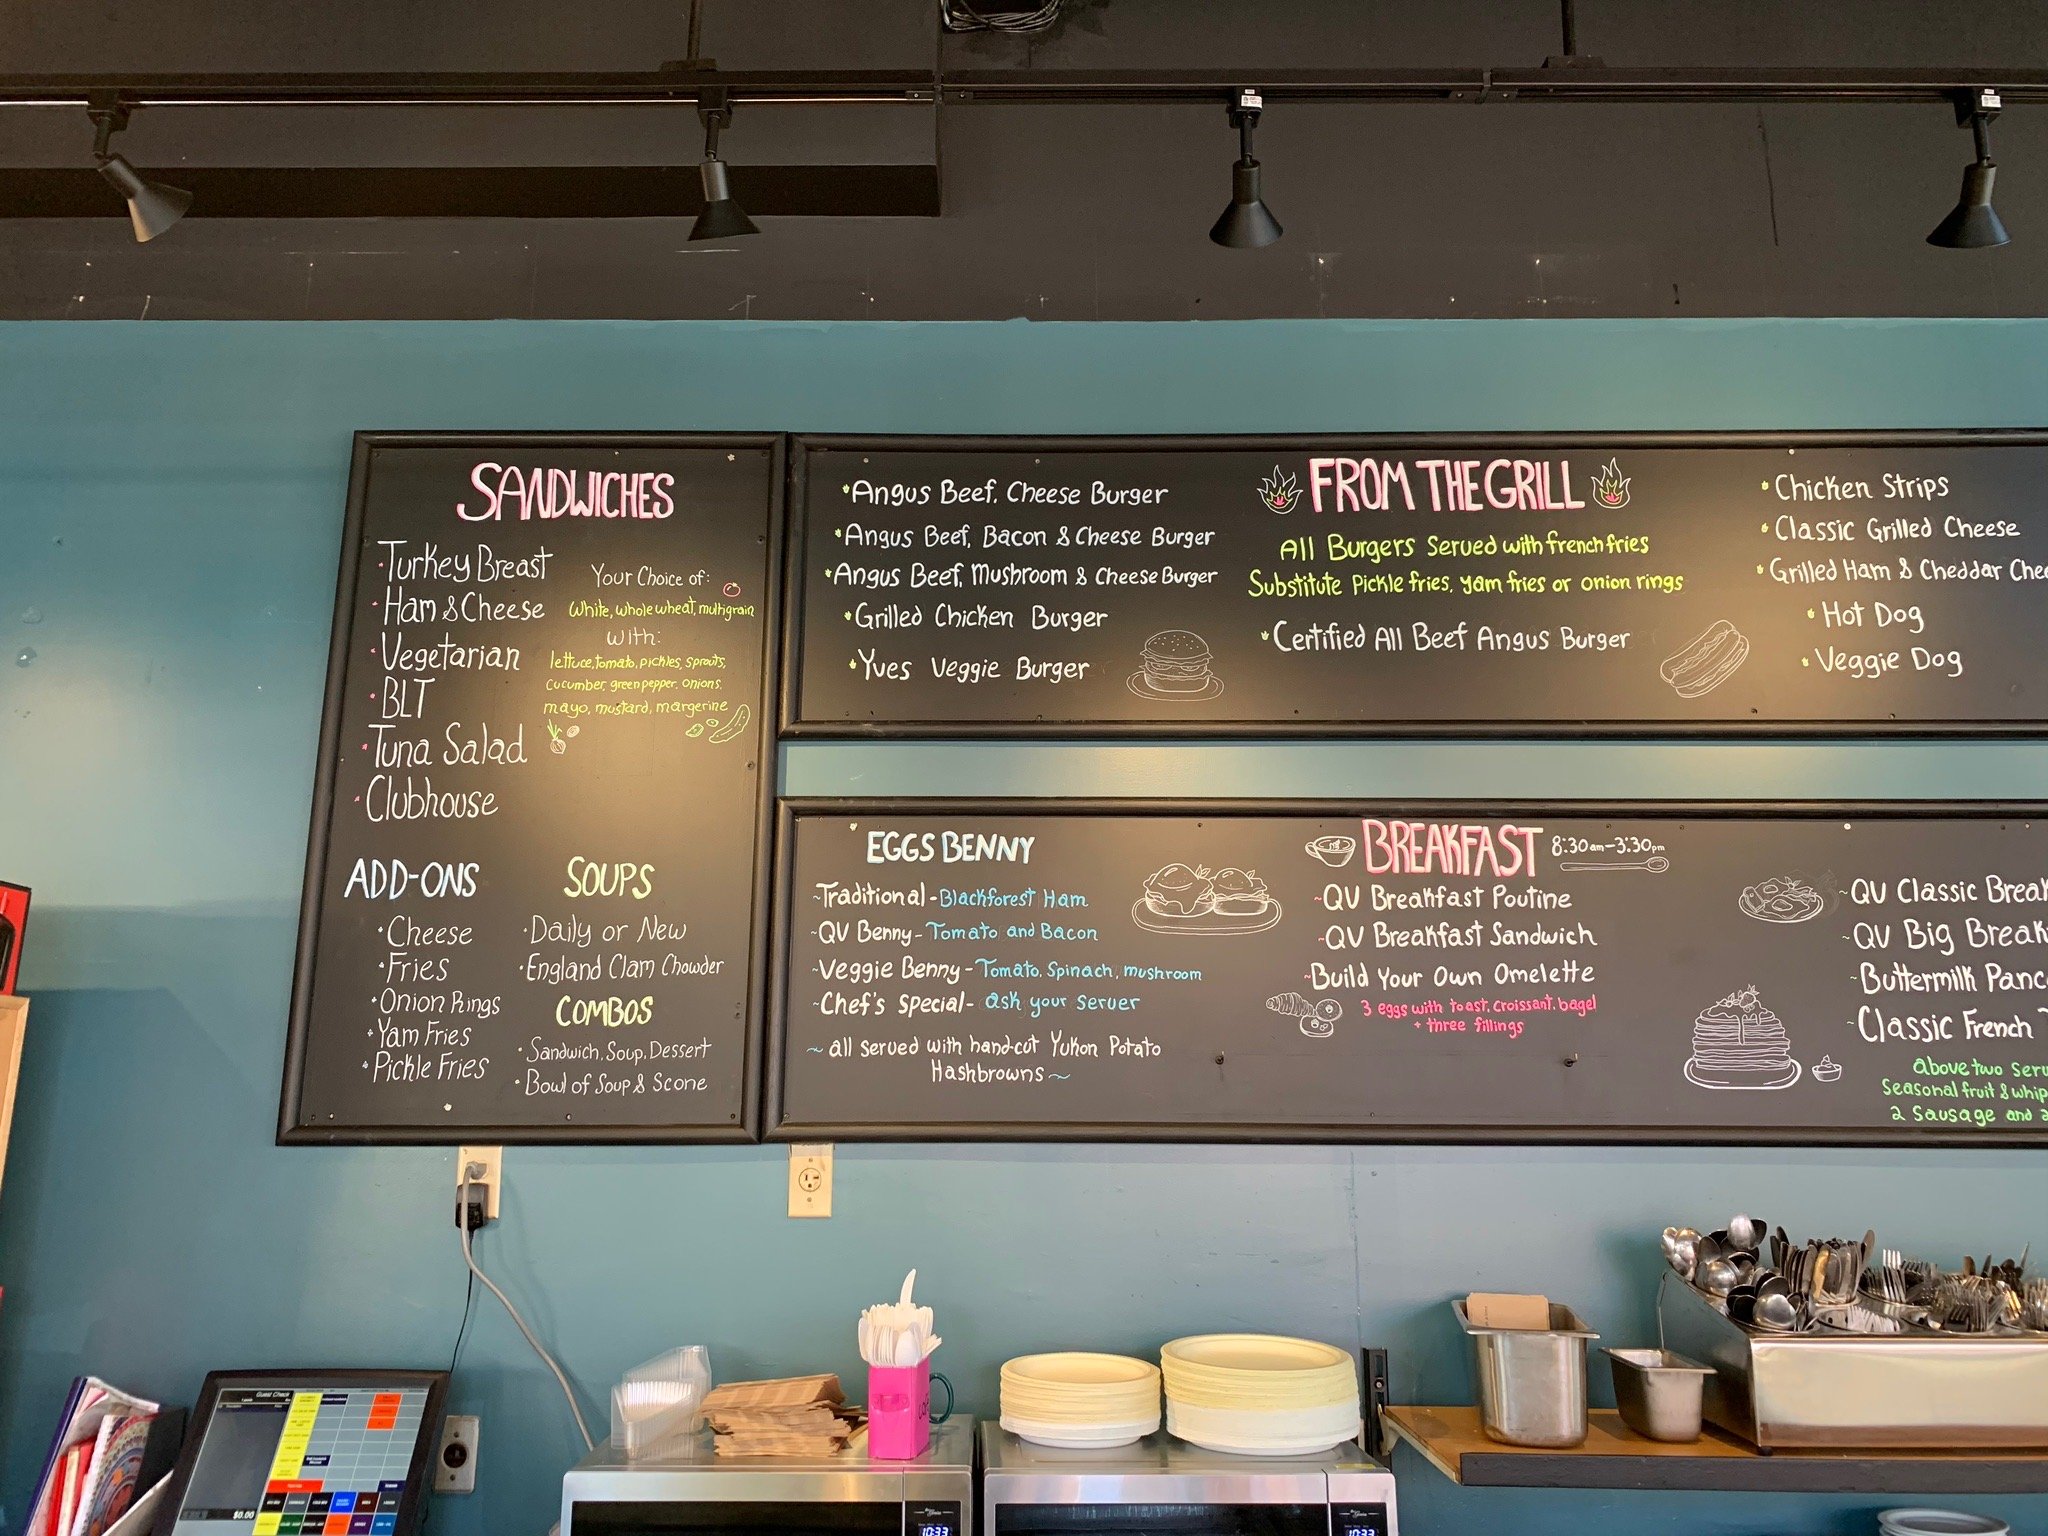 SANDWICHES
Turkey Breast
Ham & Cheese
Vegetarian
BLT
Tuna Salad
Clubhouse
Your Choice of:
White, whole wheat, multigrain
With:
lettuce, tomato, pickles, sprouts,
cucumber, green pepper, onions,
mayo, mustard, margerine
ADD-ONS
Cheese
Fries
Onion Rings
Yam Fries
Pickle Fries
SOUPS
Daily or New
England Clam Chowder
COMBOS
Sandwich, Soup, Dessert
Bowl of Soup & Scone
Angus Beef, Cheese Burger
Angus Beef, Bacon & Cheese Burger
Angus Beef, Mushroom & Cheese Burger
Grilled Chicken Burger
Yves Veggie Burger
FROM THE GRILL
All Burgers Served with french fries
Substitute Pickle fries, yam fries or onion rings
Certified All Beef Angus Burger
Chicken Strips
Classic Grilled Cheese
Grilled Ham & Cheddar Chee
Hot Dog
Veggie Dog
EGGS BENNY
~Traditional - Blackforest Ham
~QV Benny - Tomato and Bacon
~Veggie Benny - Tomato, Spinach, mushroom
~Chef's Special - ask your server
~ all served with hand-cut Yukon Potato
Hashbrowns ~
BREAKFAST 8:30am-3:30pm
~QV Breakfast Poutine
~QV Breakfast Sandwich
~Build Your Own Omelette
3 eggs with toast, croissant, bagel
+ three fillings
~QV Classic Break
~QV Big Break
~Buttermilk Panc
~Classic French T
above two serv
Seasonal fruit & whip
2 Sausage and 2
Guest Check
$0.00
10:33
10:33